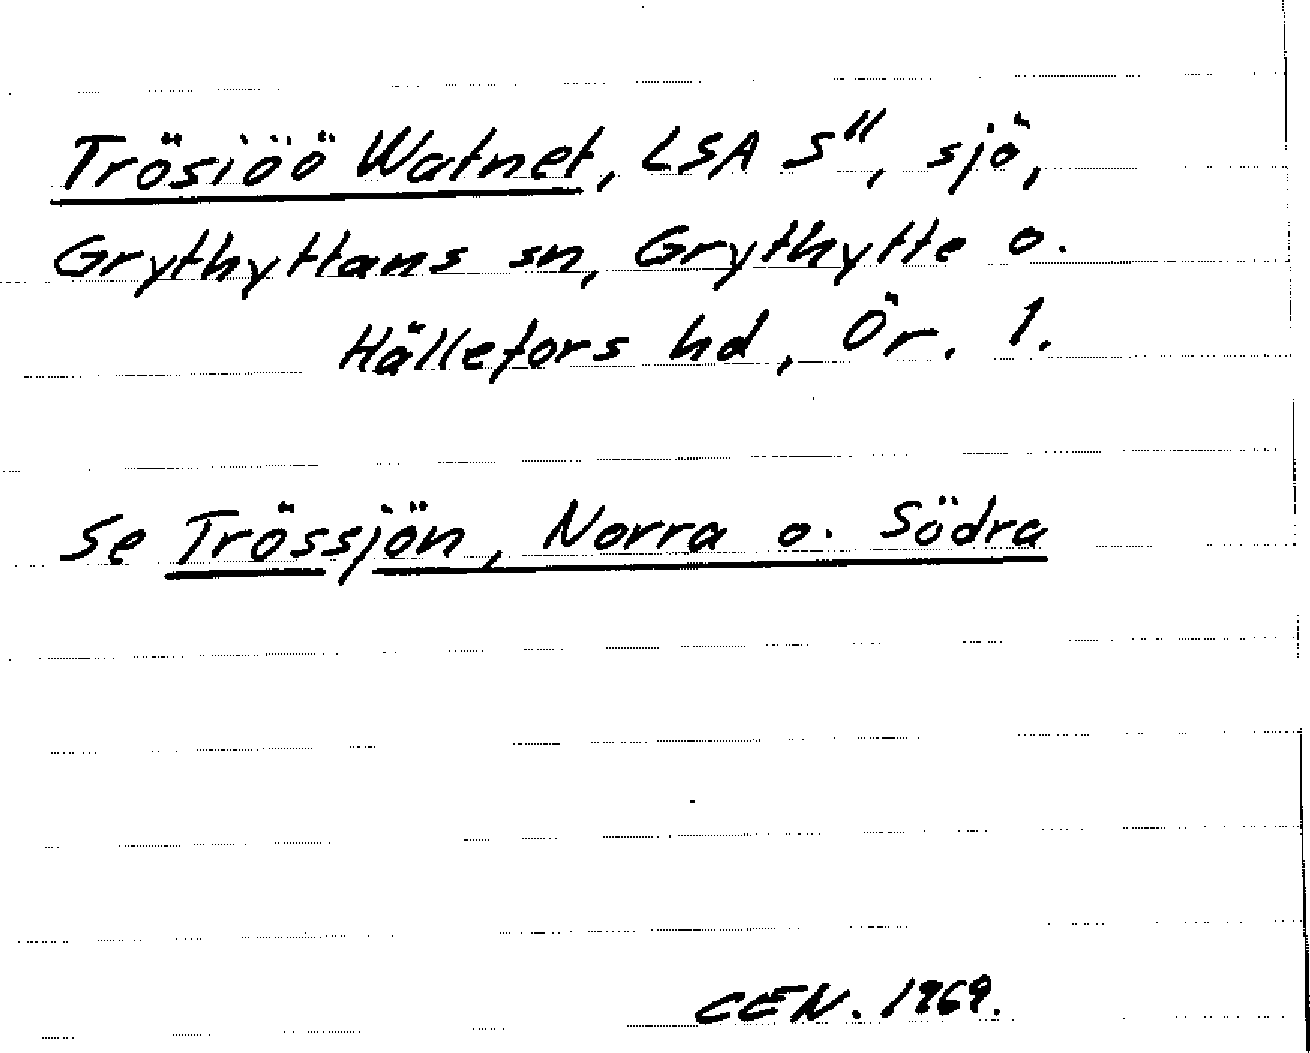 Trösiöö Watnet, LSA S", sjö,
Grythyttans sn, Grythytte o.
Hällefors hd, Ör. l.
Se Trössjön, Norra o. Södra
CEN. 1969.